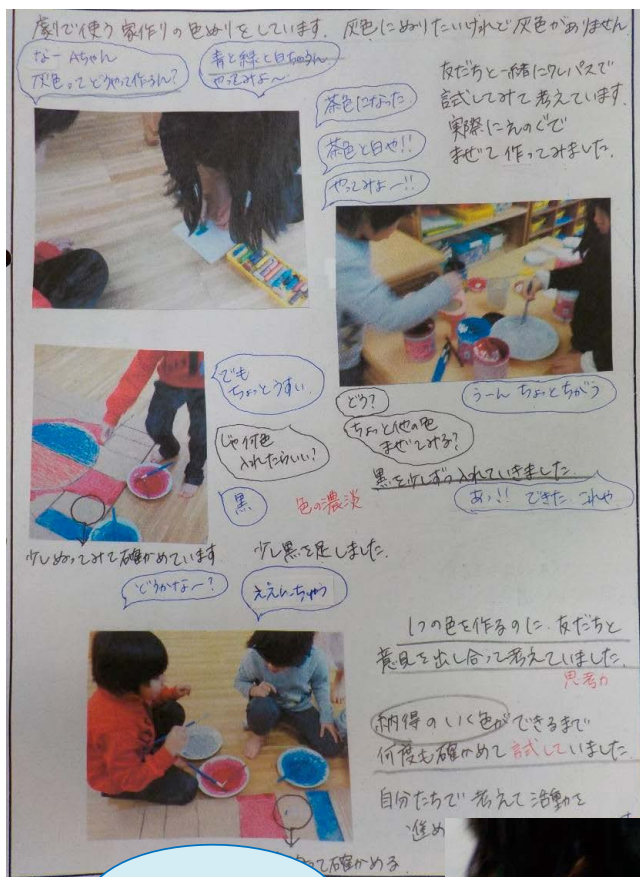 劇で使う家作りの色ぬりをしています。灰色にぬりたいけれど灰色がありません
なーAちゃん
灰色ってどうやって作るん?
青と緑と白ちゃうん
やってみよ〜
友だちと一緒にクレパスで
試してみて考えています。
実際にえのぐで
まぜて作ってみました。
茶色になった
茶色と白や!!
やってみよー!!
でも
ちょっとうすい
じゃ何色
入れたらいい?
黒
色の濃淡
どう?
うーん ちょっとちがう
ちょっと他の色
まぜてみる?
黒を少しずつ入れていきました
あっ!! できた これや
少しぬってみて確かめています
少し黒を足しました。
どうかなー?
ええんちゃう
1つの色を作るのに、友だちと
意見を出し合って考えていました。
思考力
納得のいく色ができるまで
何度も確かめて試していました。
自分たちで考えて活動を
進め
って確かめる